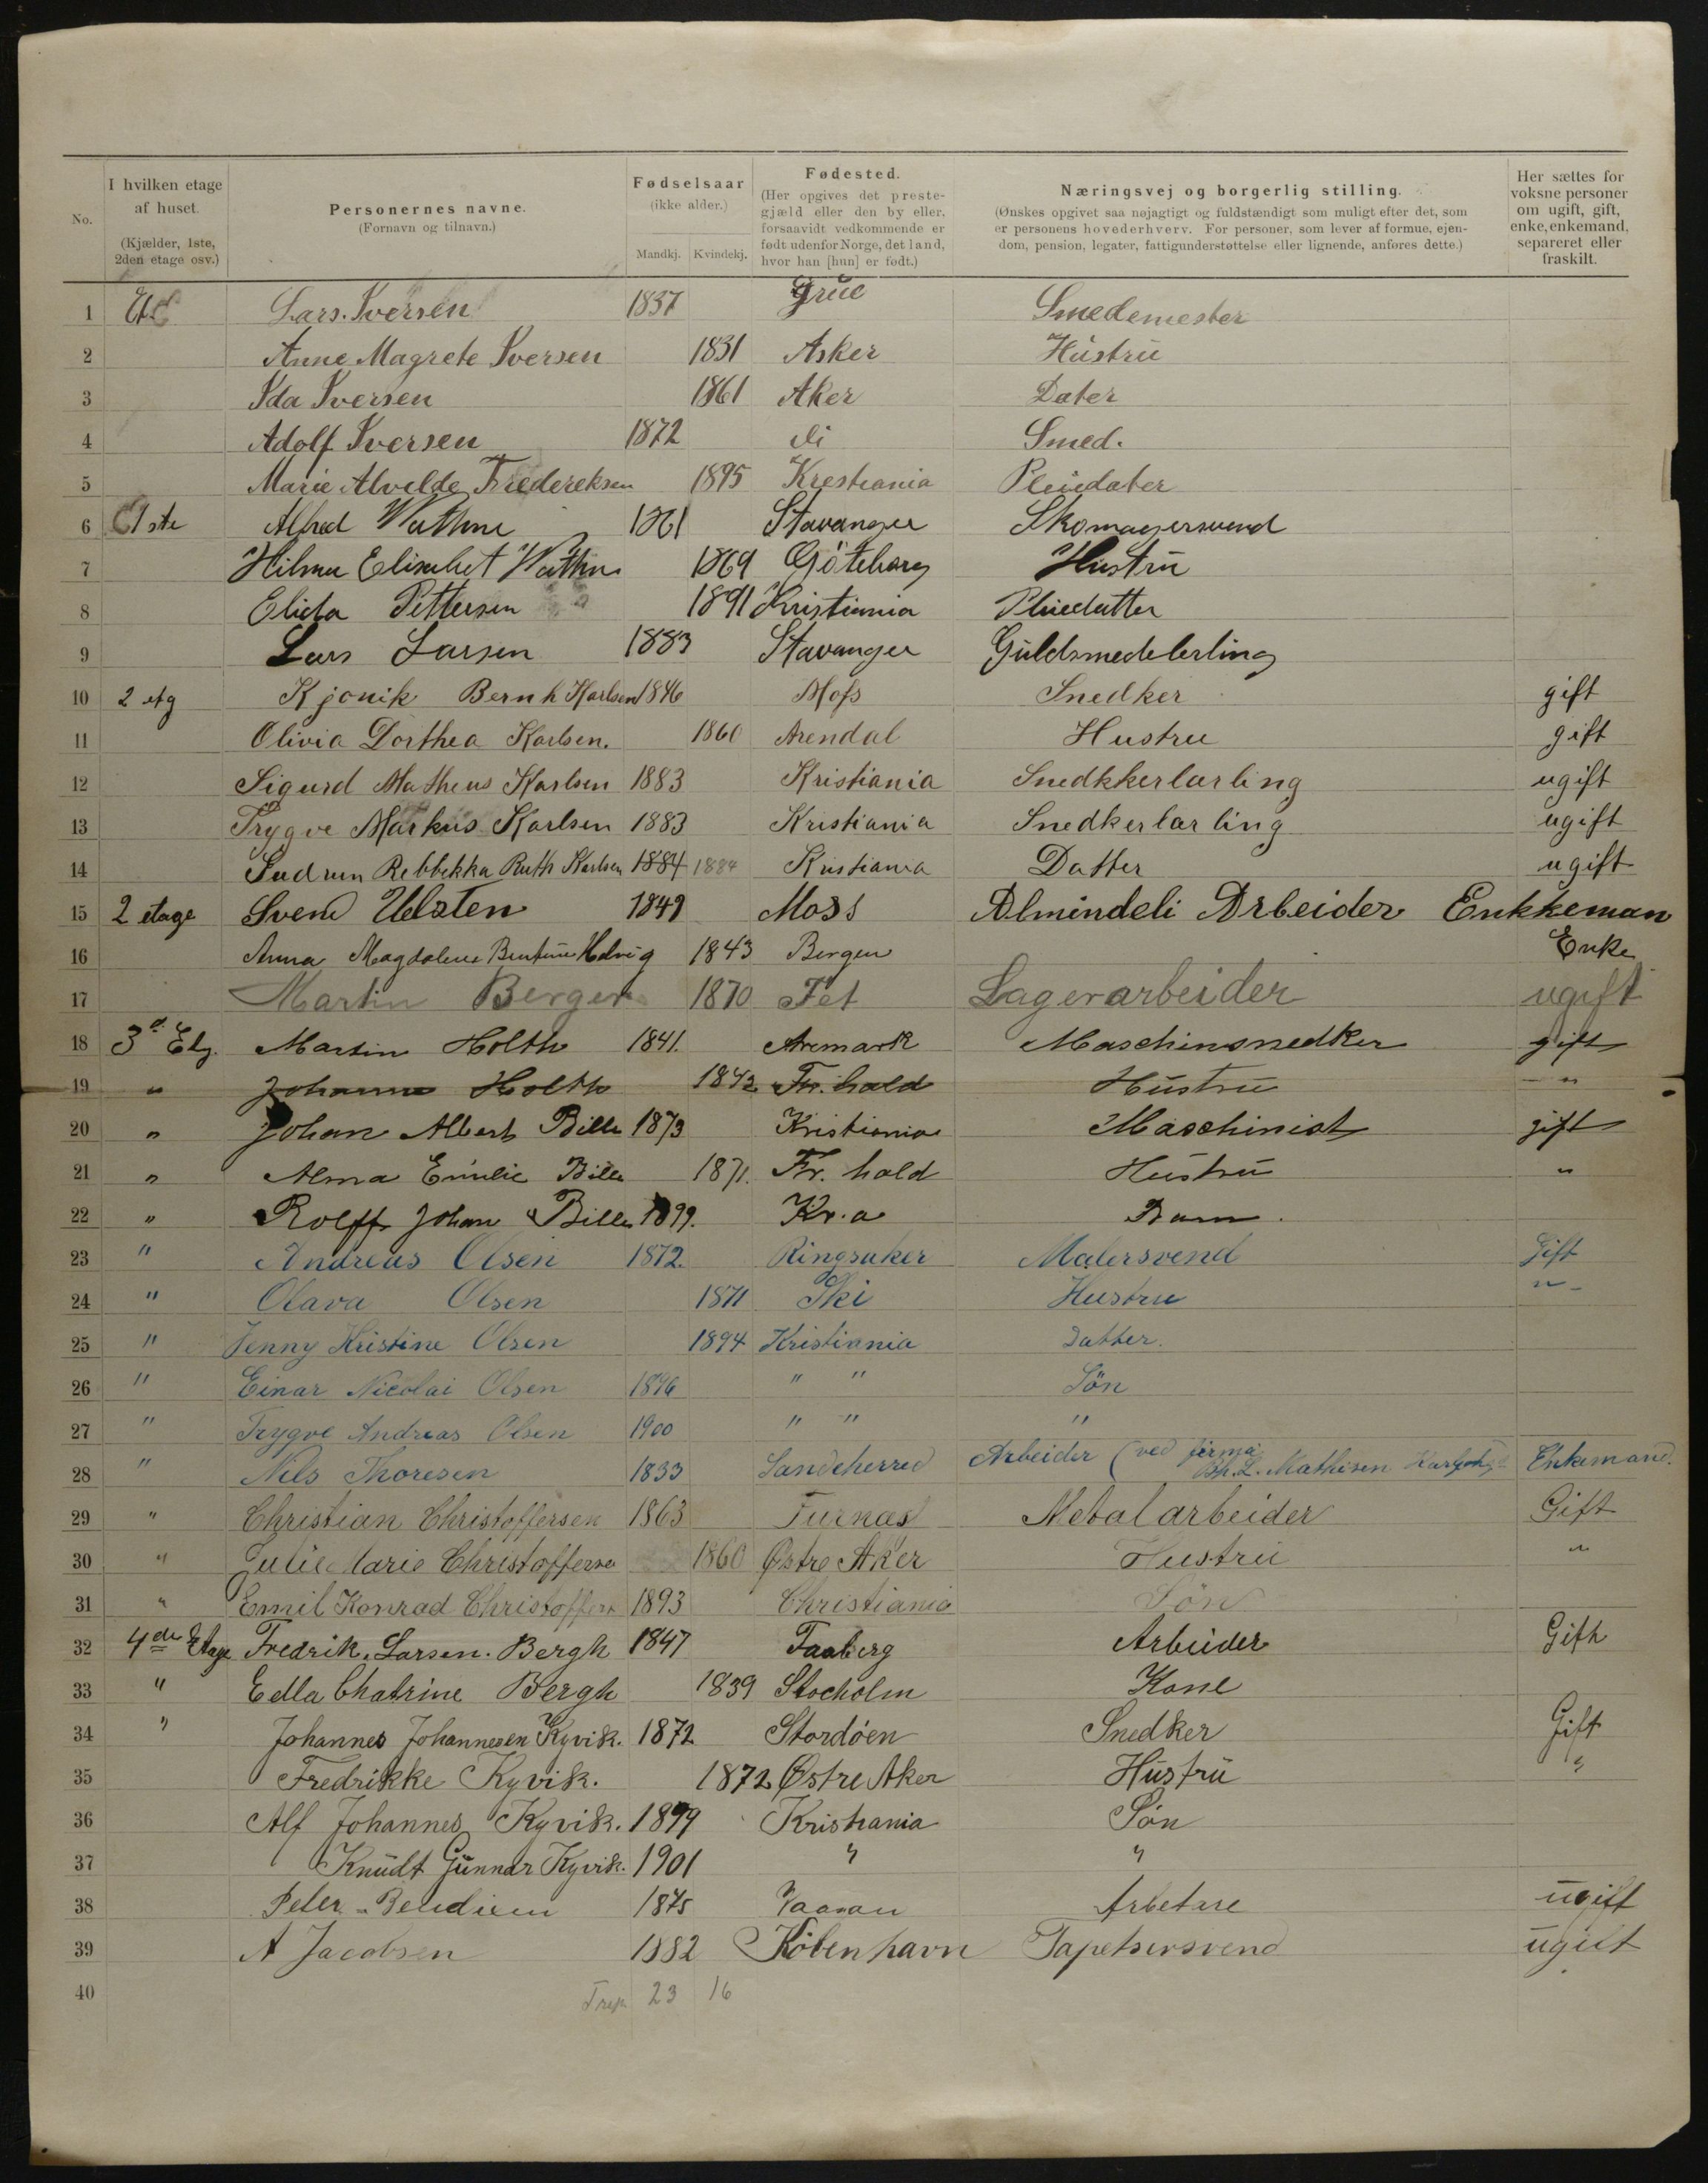 No.
I hvilken etage af huset. (Kjælder, 1ste, 2den etage osv.)
Personernes navne. (Fornavn og tilnavn.)
Fødselsaar (ikke alder.) Mandkj. Kvindekj.
Fødested. (Her opgives det prestegjæld eller den by eller, forsaavidt vedkommende er født udenfor Norge, det land, hvor han [hun] er født.)
Næringsvej og borgerlig stilling. (Ønskes opgivet saa nøjagtigt og fuldstændigt som muligt efter det, som er personens hovederhverv. For personer, som lever af formue, ejendom, pension, legater, fattigunderstøttelse eller lignende, anføres dette.)
Her sættes for voksne personer om ugift, gift, enke, enkemand, separeret eller fraskilt.
1 Lars. Iversen 1837 Grue Smedemester
2 Anne Magrete Iversen 1831 Asker Hustru
3 Ida Iversen 1861 Aker Dater
4 Adolf Iversen 1872 di Smed.
5 Marie Alvelde Fredereksen 1895 Krestiania Pleiedater
6 1ste Alfred Wathne 1861 Stavanger Skomagersvend
7 Hilma Elisabet Wathne 1869 Göteborg Hustru
8 Elida Pettersen 1891 Kristiania Pleiedatter
9 Lars Larsen 1883 Stavanger Guldsmedelerling
10 2 etg Kjønik Bernh Karlsen 1846 Mofs Snedker gift
11 Olivia Dorthea Karlsen. 1860 Arendal Hustru gift
12 Sigurd Matheus Karlsen 1883 Kristiania Snedkkerlarling ugift
13 Trygve Markus Karlsen 1883 Kristiania Snedkerlarling ugift
14 Gudrun Rebbekka Ruth Karlsen 1884 1884 Kristiania Datter ugift
15 2 etage Svend 1849 Moss Almindeli Arbeider Enkkeman
16 Anna Magdalene Helvig 1843 Bergen Enke
17 Martin Berger 1870 Fet Lagerarbeider ugift
18 3d Etg. Martin Holth 1841. Aremark Maschinsnedker gift
19 " Johanne Holth 1842 Fr. hald Hustru — "
20 " Johan Albert Bille 1873 Kristiania Maschinist gift
21 " Alma Emilie Bille 1871. Fr. hald Hustru "
22 " Rolff Johan Bille 1899. Kr.a Barn.
23 " Andreas Olsen 1872. Ringsaker Malersvend Gift
24 " Olava Olsen 1871 Ski Hustru " -
25 " Jenny Kristine Olsen 1894 Kristiania Datter.
26 " Einar Nicolai Olsen 1896 " " Søn
27 " Trygve Andreas Olsen 1900 " " "
28 " Nils Thoresen 1833 Sandeherred Arbeider (ved firma L. Mathisen Enkemand.
29 " Christian Christoffersen 1863 Furnæs Metalarbeider Gift
30 " Julie Marie Christoffersen 1860 Østre Aker Hustru "
31 " Emil Konrad Christoffers 1893 Christiania Søn
32 4de Etage Fredrik. Larsen. Bergh 1847 Faaberg Arbeider Gift
33 " Edla Chatrine Bergh 1839 Stocholm Kone
34 " Johannes Johannesen Kyvik. 1872 Stordøen Snedker Gift
35 Fredrikke Kyvik. 1872 Østre Aker Hustru "
36 Alf Johannes Kyvik. 1899 Kristiania Søn
37 Knudt Gunnar Kyvik. 1901 " "
38 Peter 1875 Arbetere ugift
39 A Jacobsen 1882 København Tapetsersvend ugift
40
23 16